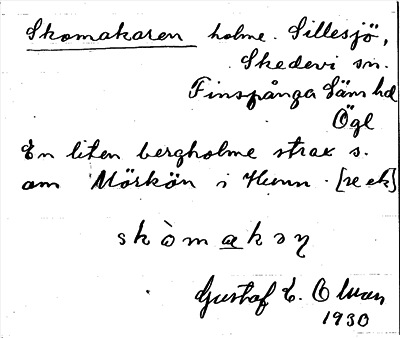 Skomakaren holme. Sillesjö,
Skedevi sn.
Finspånga läns hd
Ögl
En liten bergholme strax s.
om Mörkön i Hunn. [se ek]
skòmakəŋ
Gustaf E. Olson
1930